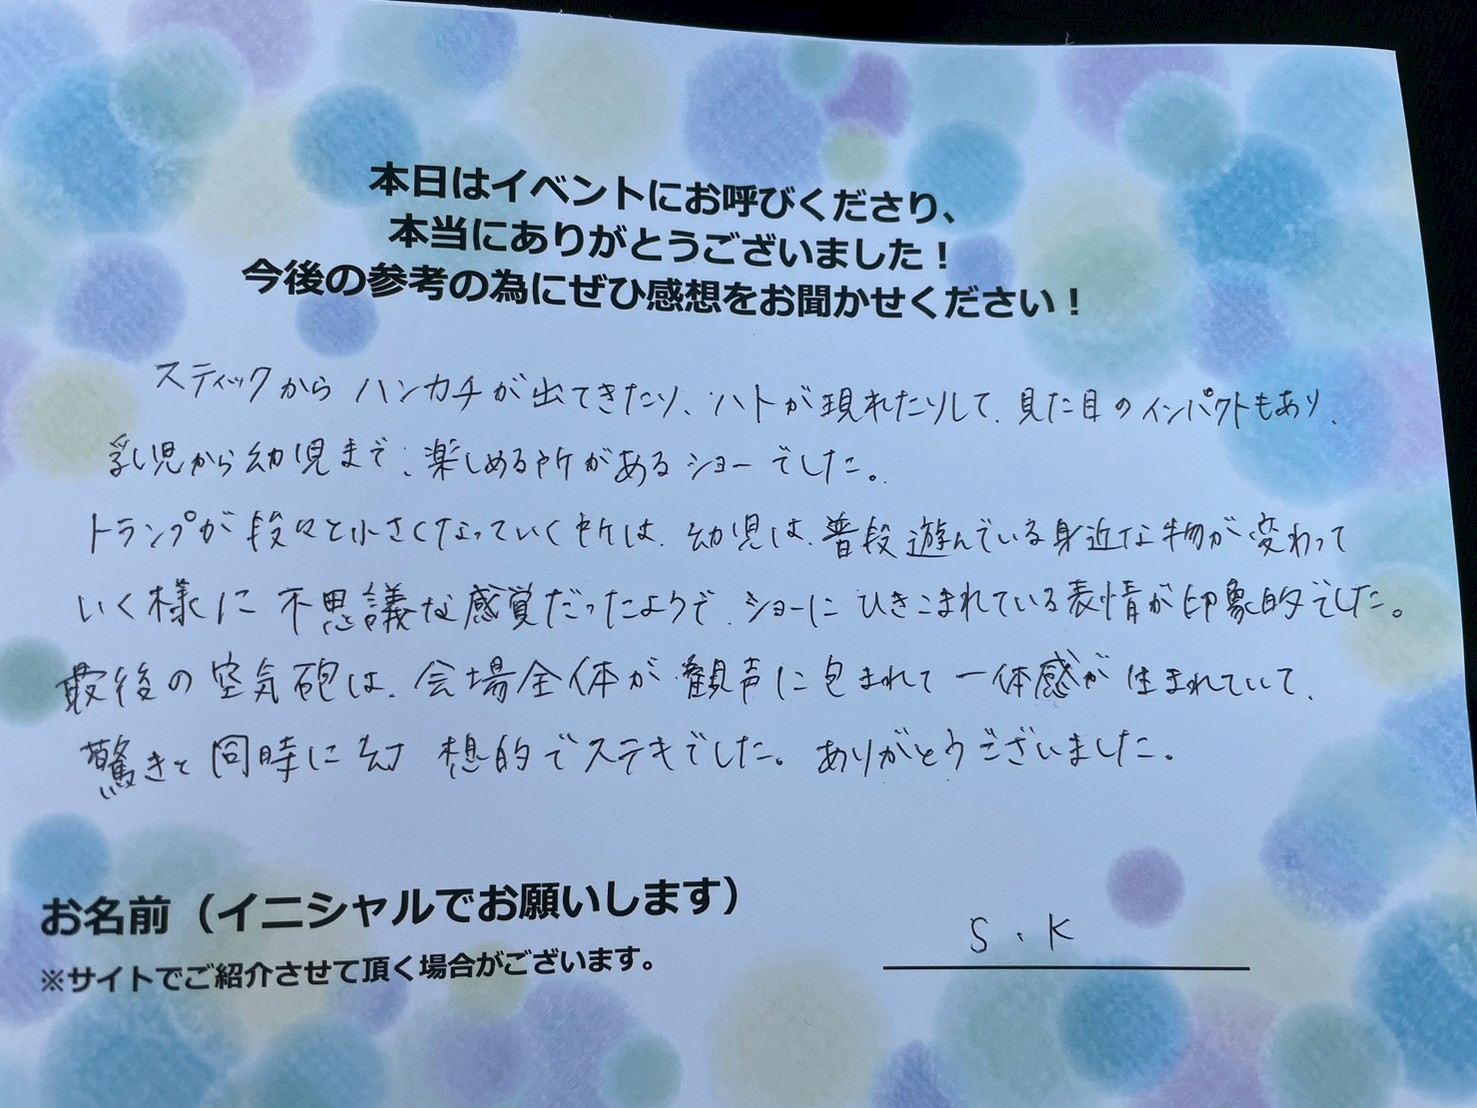 本日はイベントにお呼びくださり、
本当にありがとうございました！
今後の参考の為にぜひ感想をお聞かせください！
スティックからハンカチが出てきたり、ハトが現れたりして、見た目のインパクトもあり、
乳児から幼児まで、楽しめる所があるショーでした。
トランプが段々と小さくなっていく所は、幼児は、普段遊んでいる身近な物が変わって
いく様に不思議な感覚だったようで、ショーにひきこまれている表情が印象的でした。
最後の空気砲は、会場全体が観声に包まれて一体感が生まれていて、
驚きと同時に幻想的でステキでした。ありがとうございました。
お名前（イニシャルでお願いします）
S.K
※サイトでご紹介させて頂く場合がございます。